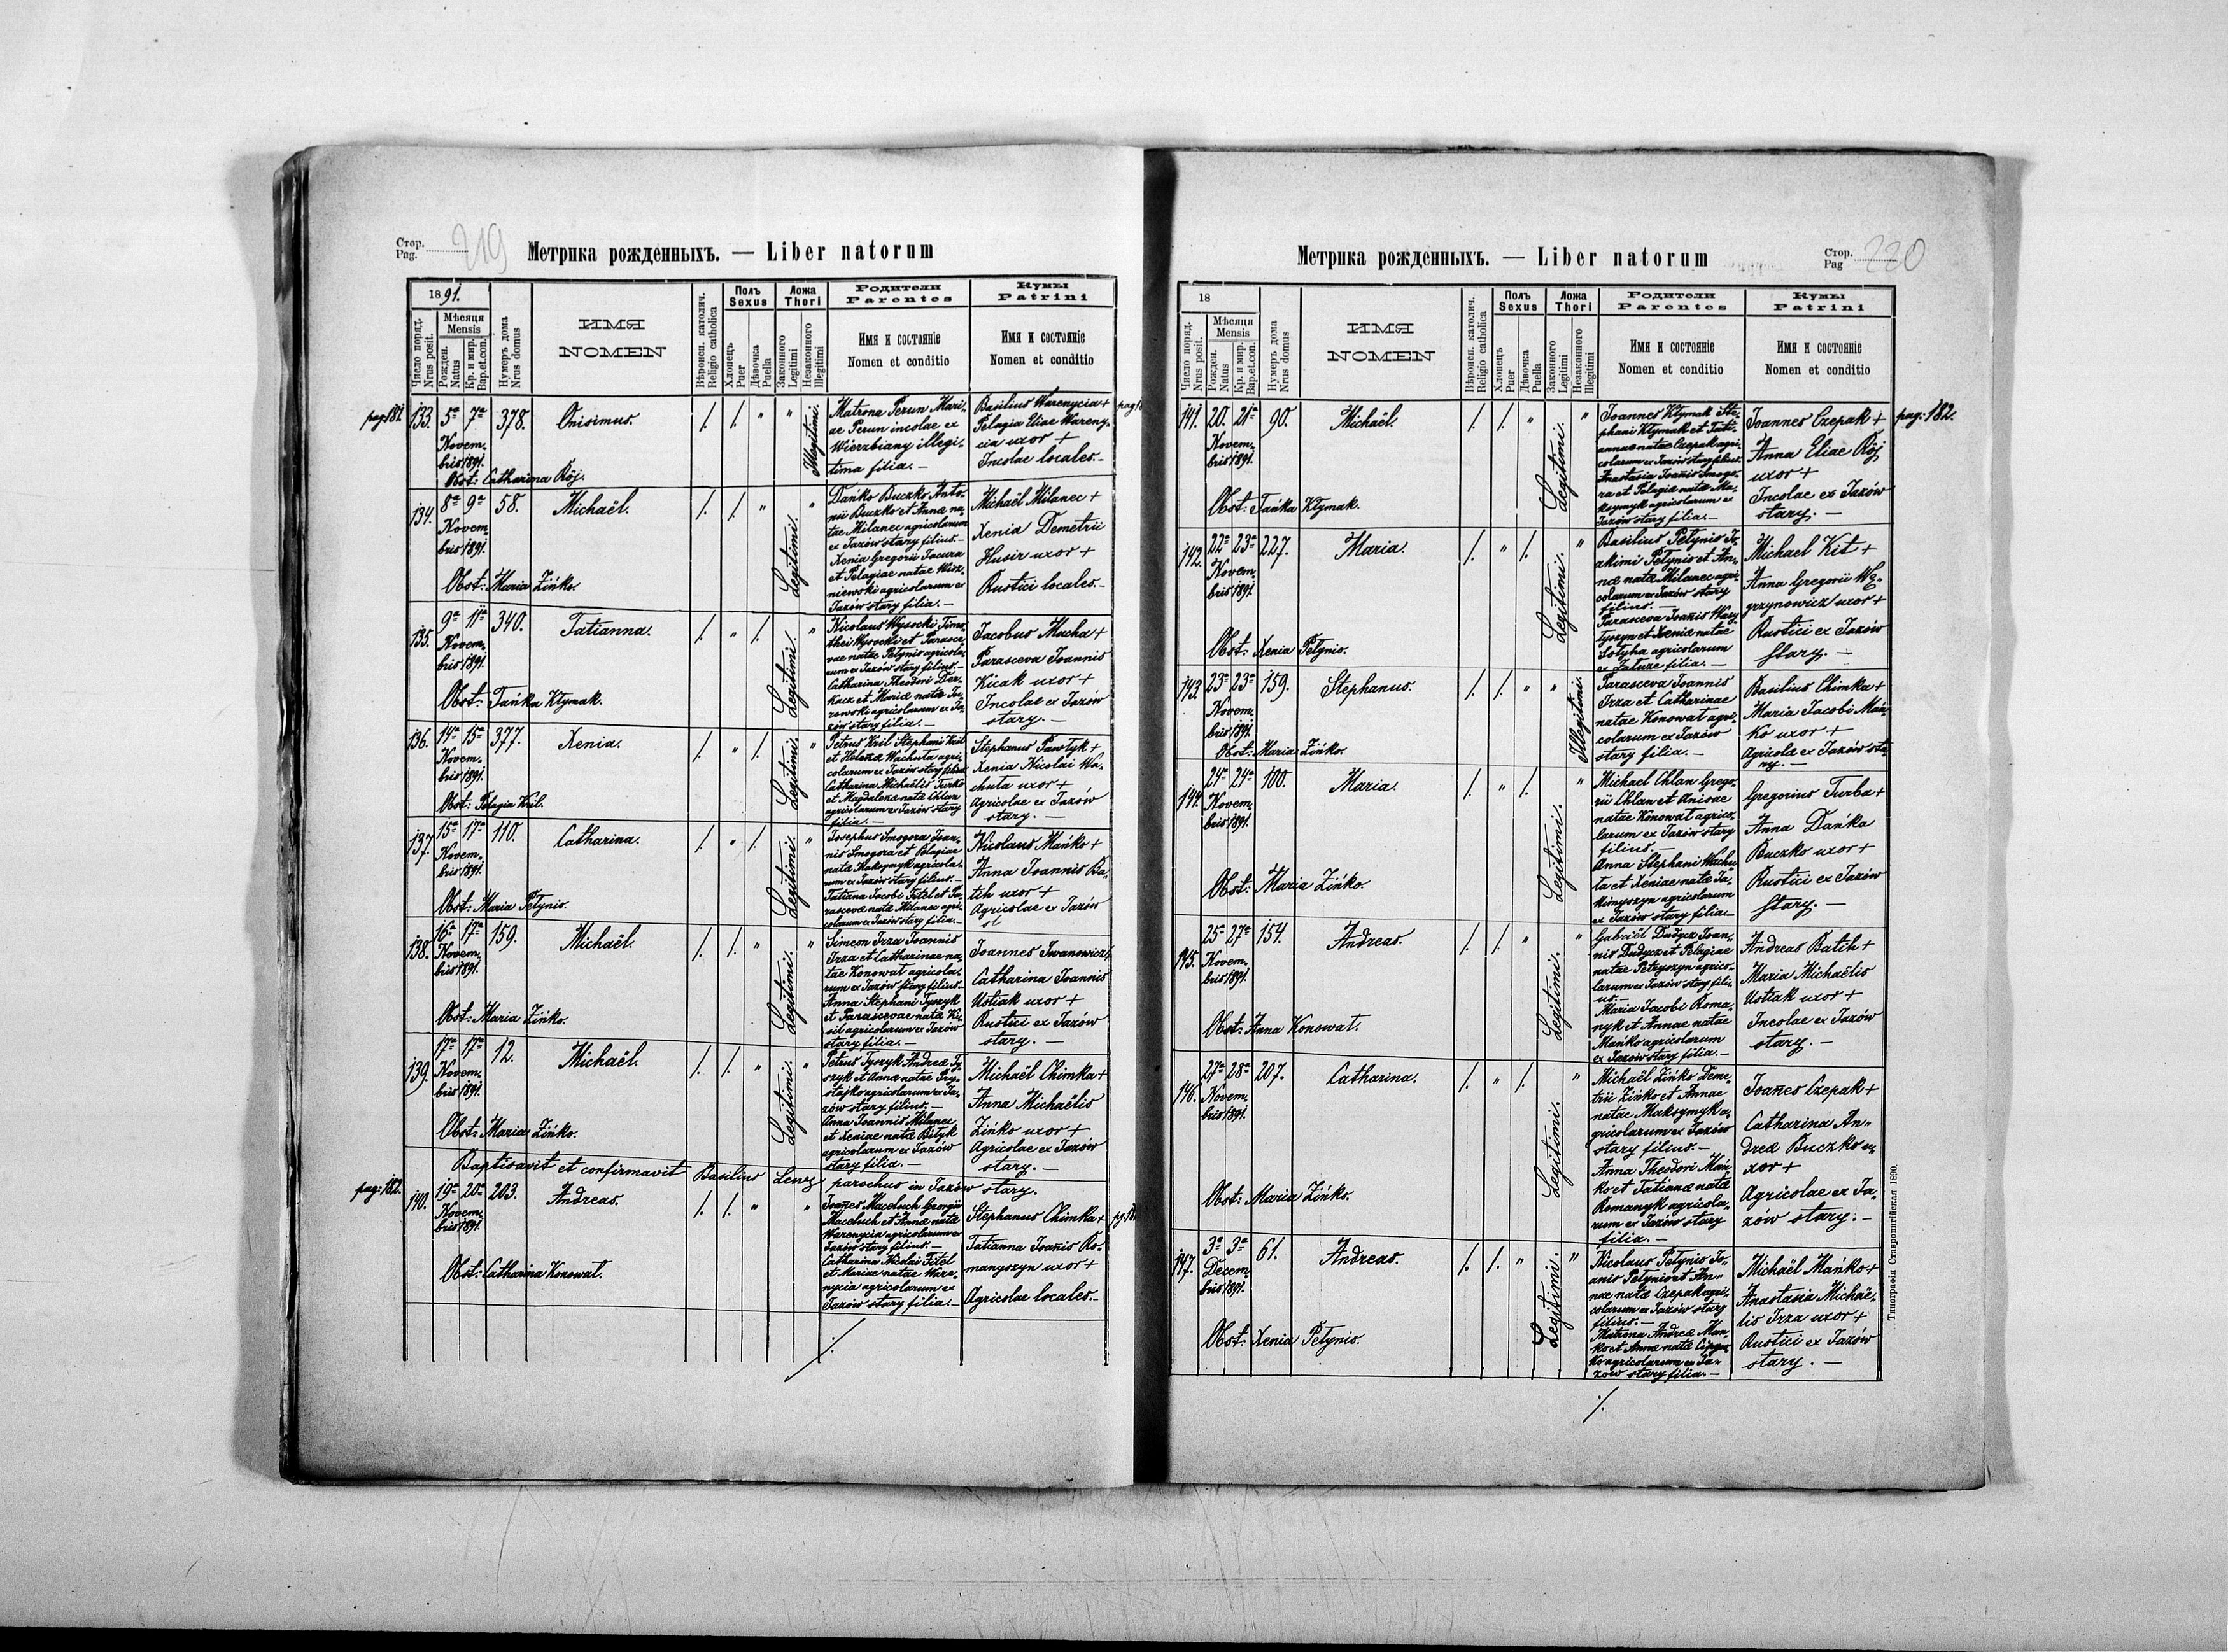 Стор.
Pag. 219
Метрика рожденныхъ. — Liber natorum
1891.
Число поряд.
Nrus posit.
Мѣсяця
Mensis
Рожден.
Natus
Кр. и мир.
Bap.et.con.
Нумеръ дома
Nrus domus
ИМЯ
NOMEN
Вѣроисп. католич.
Religio catholica
Полъ
Sexus
Хлопецъ
Puer
Дѣвочка
Puella
Ложа
Thori
Законного
Legitimi
Незаконного
Illegitimi
Родители
Parentes
Имя и состояніе
Nomen et conditio
Кумы
Patrini
Имя и состояніе
Nomen et conditio
pag 182.
133.
5ª 7ª
Novem-
bris 1891.
378.
Onisimus.
Illegitimi.
Matrona Perun Mari-
ae Perun incolae ex
Wierzbiany illegi-
tima filia. —
Basilius Warenycia +
Pelagia Eliae Wareny-
cia uxor +
Incolae locales. —
Obst: Catharina Rój.
134.
8ª 9ª
Novem-
bris 1891.
58.
Michaël.
Legitimi.
Dańko Buczko Anto-
nii Buczko et Annæ na-
tae Milanec agricolarum
ex Jazów stary filius. —
Xenia Gregorii Jacura
et Pelagiae natae Wisz-
niewski agricolarum ex
Jazów stary filia. —
Michaël Milanec +
Xenia Demetrii
Husir uxor +
Rustici locales. —
Obst: Maria Zińko.
135.
9ª 11ª
Novem-
bris 1891.
340.
Tatianna.
Legitimi.
Nicolaus Wysocki Timo-
thei Wysocki et Parasce-
vae natae Petynio agricola-
rum ex Jazów stary filius. —
Catharina Theodori Der-
kacz et Mariæ natæ Ja-
rowski agricolarum ex Ja-
zów stary filia. —
Jacobus Mucha +
Parasceva Joannis
Kicak uxor +
Incolae ex Jazów
stary. —
Obst: Tańka Kłymak.
136.
14ª 15ª
Novem-
bris 1891.
377.
Xenia.
Legitimi.
Petrus Kril Stephani Kril
et Helenæ Wachuta agri-
colarum ex Jazów stary filius
Catharina Michaëlis Turko
et Magdalenæ natæ Chlan
agricolarum ex Jazów stary
filia. —
Stephanus Pawłyk +
Xenia Nicolai Wa-
chuta uxor +
Agricolae ex Jazów
stary. —
Obst: Pelagia Kril.
137.
15ª 17ª
Novem-
bris 1891.
110.
Catharina.
Legitimi.
Josephus Smogora Joan-
nis Smogora et Pelagiae
natæ Maksymyk agricola-
rum ex Jazów stary filius. —
Tatiana Jacobi Fitel et Pa-
rascevæ natæ Milanec agri-
colarum ex Jazów stary filia. —
Nicolaus Mańko +
Anna Joannis Ba-
tih uxor +
Agricolae ex Jazów
st
Obst: Maria Petynio.
138.
16ª 17ª
Novem-
bris 1891.
159.
Michaël.
Legitimi.
Simeon Irza Joannis
Irza et Catharinae na-
tae Konowat agricola-
rum ex Jazów stary filius. —
Anna Stephani Tyszyk
et Parascevae natæ Ki-
sil agricolarum ex Jazów
stary filia. —
Joannes Iwanowicz +
Catharina Joannis
Ustiak uxor +
Rustici ex Jazów
stary. —
Obst: Maria Zińko.
139.
17ª 17ª
Novem-
bris 1891.
12.
Michaël.
Legitimi.
Petrus Tyszyk Andreæ Ty-
szyk et Annæ natae Pry-
stajko agricolarum ex Ja-
zów stary filius. —
Anna Joannis Milanec
et Xeniae natæ Bityk
agricolarum ex Jazów
stary filia. —
Michaël Chimka +
Anna Michaëlis
Zińko uxor +
Agricolae ex Jazów
stary. —
Obst: Maria Zińko.
Baptisavit et confirmavit Basilius Lewy parochus in Jazów stary.
pag: 182.
140.
19ª 20ª
Novem-
bris 1891.
203.
Andreas.
Joañes Maceluch Georgii
Maceluch et Annæ natæ
Warenycia agricolarum ex
Jazów stary filius. —
Catharina Nicolai Fitel
et Mariae natae Ware-
nycia agricolarum ex
Jazów stary filia. —
Stephanus Chimka +
Tatianna Joañis Ro-
manyszyn uxor +
Agricolae locales. —
Obst: Catharina Konowat.
Метрика рожденныхъ. — Liber natorum
Стор.
Pag 220
18
Число поряд.
Nrus posit.
Мѣсяця
Mensis
Рожден.
Natus
Кр. и мир.
Bap.et.con.
Нумеръ дома
Nrus domus
ИМЯ
NOMEN
Вѣроисп. католич.
Religio catholica
Полъ
Sexus
Хлопецъ
Puer
Дѣвочка
Puella
Ложа
Thori
Законного
Legitimi
Незаконного
Illegitimi
Родители
Parentes
Имя и состояніе
Nomen et conditio
Кумы
Patrini
Имя и состояніе
Nomen et conditio
141.
20. 21ª
Novem-
bris 1891.
90.
Michaël.
Legitimi.
Joannes Kłymak Ste-
phani Kłymak et Tati-
annæ natae Czepak agri-
colarum ex Jazów stary filius.
Anastasia Joañis Smogo-
ra et Pelagiæ natæ Ma-
ksymyk agricolarum ex
Jazów stary filia. —
Joannes Czepak +
Anna Eliae Rój
uxor +
Incolae ex Jazów
stary. —
pag: 182.
Obst: Tańka Kłymak.
142.
22ª 23ª
Novem-
bris 1891
227.
Maria.
Legitimi.
Basilius Petynio Jo-
akimi Petynio et An-
næ natæ Milanec agri-
colarum ex Jazów stary
filius. —
Parasceva Joañis Wasy-
łyszyn et Xeniæ natæ
Sotyha agricolarum
ex Załuze filia. —
Michael Kit +
Anna Gregorii Wę-
grzynowicz uxor +
Rustici ex Jazów
stary. —
Obst: Xenia Petynio.
143.
23ª 23ª
Novem-
bris 1891.
159.
Stephanus.
Illegitimi.
Parasceva Joannis
Irza et Catharinae
natae Konowat agri-
colarum ex Jazów
stary filia. —
Basilius Chimka +
Maria Jacobi Mań-
ko uxor +
Agricolæ ex Jazów sta-
ry. —
Obst: Maria Zińko.
144.
24ª 24ª
Novem-
bris 1891.
100.
Maria.
Legitimi.
Michael Chlan Grego-
rii Chlan et Anisae
natae Konowat agrico-
larum ex Jazów stary
filius. —
Anna Stephani Wachu-
ta et Xeniae natæ Ja-
kimyszyn agricolarum
ex Jazów stary filia —
Gregorius Turba +
Anna Dańka
Buczko uxor +
Rustici ex Jazów
stary. —
Obst: Maria Zińko.
145.
25ª 27ª
Novem-
bris 1891.
154.
Andreas.
Legitimi.
Gabriël Dudycz Joan-
nis Dudycz et Pelagiae
natae Petryszyn agrico-
larum ex Jazów stary fili-
us. —
Maria Jacobi Roma-
nyk et Annae natae
Mańko agricolarum
ex Jazów stary filia. —
Andreas Batih +
Maria Michaëlis
Ustiak uxor +
Incolae ex Jazów
stary. —
Obst: Anna Konowat.
146.
27ª 28ª
Novem-
bris 1891.
207.
Catharina.
Legitimi.
Michaël Zińko Deme-
trii Zińko et Annae
natae Maksymyk a-
gricolarum ex Jazów
stary filius. —
Anna Theodori Mań-
ko et Tatianæ natæ
Romanyk agricola-
rum ex Jazów stary
filia. —
Joañes Czepak +
Catharina An-
dreæ Buczko u-
xor +
Agricolae ex Ja-
zów stary. —
Obst: Maria Zińko.
147.
3ª 3ª
Decem-
bris 1891.
61.
Andreas.
Legitimi.
Nicolaus Petynio Jo-
anis Petynio et An-
nae natæ Czepak agri-
colarum ex Jazów stary
filius. —
Matrona Andreæ Mań-
ko et Annæ natæ
agricolarum ex Ja-
zów stary filia. —
Michaël Mańko +
Anastasia Michaë-
lis Irza uxor +
Rustici ex Jazów
stary. —
Obst: Xenia Petynio.
Типографія Ставропигійская 1890.